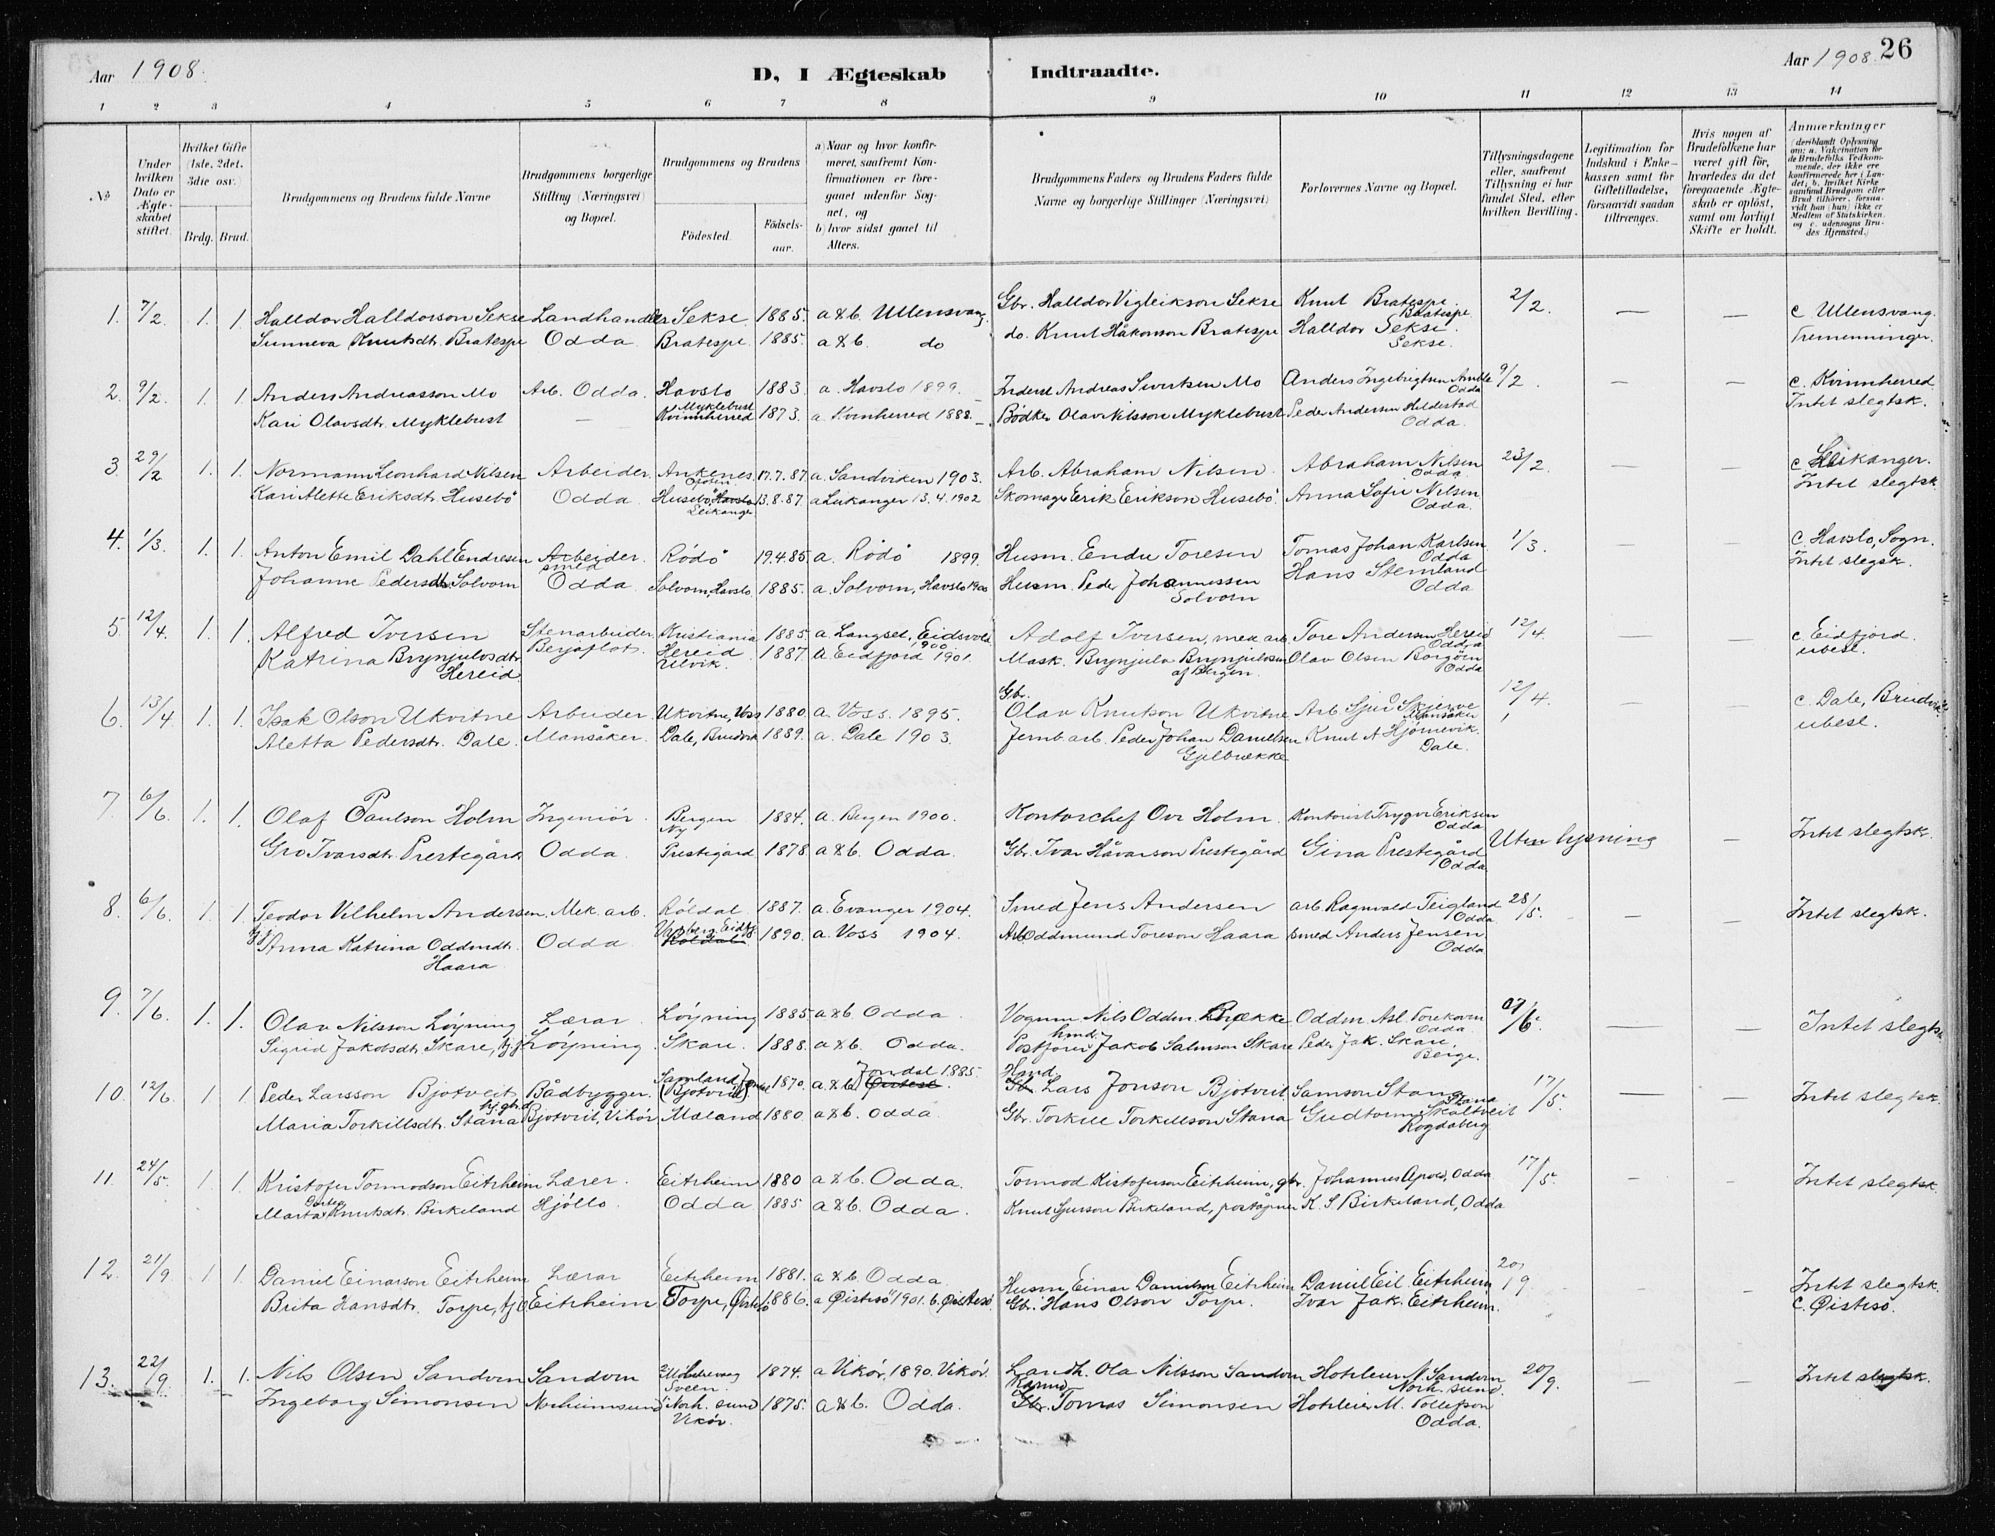 Aar 1908.
D, I Ægteskab Indtraadte.
Aar 1908. 26
1 2 3 4 5 6 7 8 9 10 11 12 13 14
No.
Under hvilken Dato er Ægteskabet stiftet.
Hvilket Gifte (1ste, 2det, 3die osv.
Brdg. Brud.
Brudgommens og Brudens fulde Navne
Brudgommens borgerlige Stilling (Næringsvei) og Bopæl.
Brudgommens og Brudens
Födested. Födsels-aar.
a) Naar og hvor konfirmeret, saafremt Konfirmationen er foregaaet udenfor Sognet, og
b) hvor sidst gaaet til Alters.
Brudgommens Faders og Brudens Faders fulde Navne og borgerlige Stillinger (Næringsvei)
Forlovernes Navne og Bopæl.
Tillysningsdagene eller, saafremt Tillysning ei har fundet Sted, efter hvilken Bevilling.
Legitimation for Indskud i Enkekassen samt for Giftetilladelse, forsaavidt saadan tiltrænges.
Hvis nogen af Brudefolkene har været gift för, hvorledes da det foregaaende Ægteskab er oplöst, samt om lovligt Skifte er holdt.
Anmærkninger (deriblandt Oplysning om: a. Vakcination for de Brudefolks Vedkommende, der ikke ere konfirmerede her i Landet; b. hvilket Kirkesamfund Brudgom eller Brud tilhörer, forsaavidt han (hun) ikke er Medlem af Statskirken, og c. udensogns Brudes Hjemsted.)
1. 7/2. 1. 1. Halldor Halldorson Sekse Landhandler Sekse 1885. a & b. Ullensvang. Gbr. Halldor Vigleikson Sekse Knut Bratespe. Bratespe 2/2. — — c Ullensvang.
Sunneva Knutsdt. Bratespe Odda Bratespe 1885. a & b. do do. Knut Håkonson Bratespe Halldor Sekse. Sekse. Tremenninger.
2. 9/2. 1 1 Anders Andreasson Mo Arb. Odda. Havslo 1883 a. Havslo 1899. Inderst Andreas Sivertsen Mo Anders Ingebrigtsen Amble Odda 9/2 — — c. Kvinnherred
Kari Olavsdt. Myklebust — Myklebust Kvinnherred 1873. a. Kvinnherred 1888. Bødker Olav Nilsson Myklebust Peder Andersen Hildestad Odda. Intet slegtsk.
3 29/2 1. 1. Normann Leonhard Nilsen Arbeider Ankenes Ofoten 17.7.87 a. Sandviken 1903. Arb. Abraham Nilsen Abraham Nilsen Odda. 23/2. — — c Leikanger.
Kari Alette Eriksdt. Husebö Odda. Husebö, Havslo Leikanger 13.8.87 a Leikanger 13.4.1902 Skomager Erik Erikson Husebö. Anna Sofie Nilsen Odda. Intet slegtsk.
4. 1/3. 1. 1. Anton Emil Dahl Endresen Arbeider. smed Rödö 19.4.85 a. Rödö 1899. Husm. Endre Toresen Tomas Johan Karlsen Odda 1/3. — — c. Havslo, Sogn.
Johanne Pedersdt. Solvorn Odda. Solvorn, Havslo. 1885. a. Solvorn, Havslo 1900 Husm. Peder Johannessen Solvorn Hans Stemland Odda Intet slegsk.
5. 12/4. 1. 1. Alfred Iversen Stenarbeider Kristiania 1885. a. Langset, Eidsvold 1900. Adolf Iversen, mek. arb. Tore Andersen Hereid Odda 12/4. — — c. Eidfjord.
Katrina Brynjulvsdt. Hereid Berjaflot. Hereid Ulvik. 1887. a. Eidfjord 1901. Mask. Brynjulv Brynjulvsen af Bergen. Olav Olsen Borgöen Odda ubesl.
6. 13/4. 1. 1. Isak Olson Ukvitne Arbeider Ukvitne, Voss 1880 a. Voss. 1895. Gbr. Olav Knutson Ukvitne Arb. Sjur Skjerve Mansåker 12/4. — — c. Dale, Bruvik
Aletta Pedersdt. Dale. Mansåker. Dale, Bruvik 1889. a. Dale 1903. Jernb.arb. Peder Johan Danielsen Gjelbrække Knut A Hjörnevik. Dale. ubesl.
7. 6/6. 1. 1. Olaf Paulson Holm Ingeniör Bergen 1884. a. Bergen 1900. Kontorchef Ove Holm. Kontorist Trygve Eriksen Odda Uten lysning — Intet slegtsk.
Gro Ivarsdt. Prestegård Odda. Ny Prestegård 1878 a & b. Odda. Gbr. Ivar Håvarson Prestegård Gina Prestegård Odda
8. 6/6. 1. 1. Teodor Vilhelm Andersen. Mek. arb. Röldal 1887. a. Evanger 1904. Smed Jens Andersen arb. Ragnvald Teigland Odda 28/5. — — Intet slegtsk.
Anna Katrina Oddmdt. Haara Odda Röldal 1890. a. Voss 1904. Arb. Oddmund Toreson Haara smed Anders Jensen. Odda
9. 7/6. 1. 1. Olav Nilsson Löyning Lærar Löyning 1885 a & b Odda Vognm Nils Oddm. Brække Oddm. Asl. Tokam Odda. 7/6. — — Intet slegtsk
Sigrid Jakobsdt. Skare, Löyning Skare. 1888. a & b. Odda. Postförer Jakob Salmson Skare Peder Jak. Skare, Berge.
10. 12/6. 1 1. Peder Larsson Bjotveit Bådbygger. Samland (Bjotveit) 1870. a & b Jondal 1885. Øistese. Hmd. Gb. Lars Jonson Bjotveit Samson Stana Stana 17/5. — — Intet slegtsk.
Maria Torkillsdt. Stana Bjotveit, Vikör Mæland 1880 a & b. Odda. Gbr. Torkill Torkillson Stana Gudtorm Skaltveit Rogdaberg
11. 24/5. 1 1. Kristofer Tormodson Eitrheim Lærer. Eitrheim 1880 a & b. Odda. Tormod Kristoferson Eitrheim, gbr. Johannes Apold, Odda 17/5. — — Intet slegtsk.
Marta Dortea Knutsdt. Birkeland Hjöllo Odda 1885 a & b. Odda. Knut Sjurson Birkeland, poståpner K. S. Birkeland, Odda
12. 21/9. 1 1. Daniel Einarson Eitrheim Lærar Eitrheim 1881. a & b. Odda. Husm Einar Danielson Eitrheim Daniel Eil. Eitrheim 20/9 — — Intet slegtsk.
Brita Hansdt. Torpe, Eitrheim Torpe, Øistesö 1886. a Øistesö 1901. b. Øistesö Gbr. Hans Olson Torpe. Ivar Jak. Eitrheim. C. Øistesö.
13. 22/9. 1. 1. Nils Olsen Sandven Sandven Sveen. 1874. a Vikör, 1890. Vikör. Landh. Ola Nilsson Sandven Hoteleier N. Sandven Norh. sund 20/9. — — Intet slegtsk.
Ingeborg Simonsen Norheimsund Norh. sund Vikör. 1875. a & b. Odda. Gbr. Tomas Simonsen Hoteleier M. Tollefson Odda.